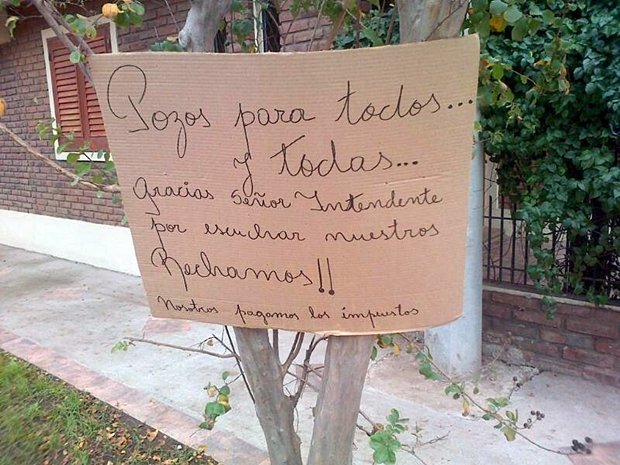 Pozos para todos...
y todas...
Gracias Señor Intendente
por escuchar nuestros
Rechamos!!
Nosotros pagamos los impuestos